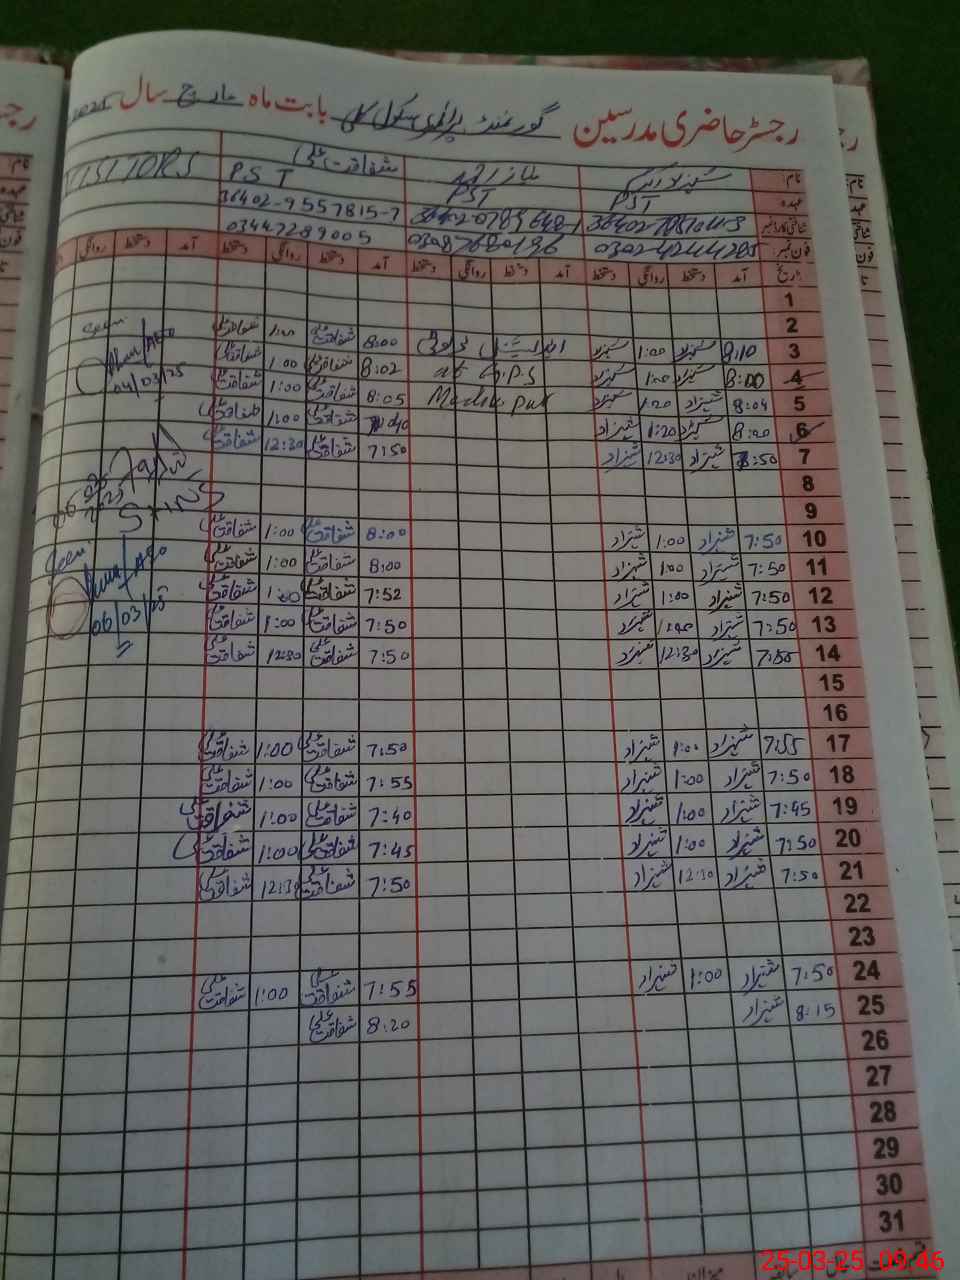 رجسٹر حاضری مدرسین گورنمنٹ پرائمری سکول بابت ماہ مارچ سال 2025
نام: شہزاد شفاقت علی VISITORS
عہدہ PST PST PST
شناختی کارڈ نمبر 36402-9557815-7
فون نمبر: 03447289005
تاریخ آمد دستخط روانگی دستخط آمد دستخط روانگی دستخط آمد دستخط روانگی دستخط آمد دستخط
1
2
3 8:10 شہزاد 1:00 شہزاد 8:00 شفاقت علی 1:00 شفاقت علی Seen
4 8:00 شہزاد 1:00 شہزاد at G.P.S 8:02 شفاقت علی 1:00 شفاقت علی AEO
5 8:04 شہزاد 1:00 شہزاد 8:05 شفاقت علی 1:00 شفاقت علی 04/03/25
6 8:00 شہزاد 1:20 شہزاد شفاقت علی 1:00 شفاقت علی
7 8:50 شہزاد 12:30 شہزاد 7:50 شفاقت علی 12:30 شفاقت علی
8
9 06-03-2025
10 7:50 شہزاد 1:00 شہزاد 8:00 شفاقت علی 1:00 شفاقت علی
11 7:50 شہزاد 1:00 شہزاد 8:00 شفاقت علی 1:00 شفاقت علی Seen
12 7:50 شہزاد 1:00 شہزاد 7:52 شفاقت علی 1:00 شفاقت علی AEO
13 7:50 شہزاد 1:00 شہزاد 7:50 شفاقت علی 1:00 شفاقت علی 06/03/25
14 7:55 شہزاد 12:30 شہزاد 7:50 شفاقت علی 12:30 شفاقت علی
15
16
17 7:55 شہزاد 1:00 شہزاد 7:50 شفاقت علی 1:00 شفاقت علی
18 7:50 شہزاد 1:00 شہزاد 7:55 شفاقت علی 1:00 شفاقت علی
19 7:45 شہزاد 1:00 شہزاد 7:40 شفاقت علی 1:00 شفاقت علی
20 7:50 شہزاد 1:00 شہزاد 7:45 شفاقت علی 1:00 شفاقت علی
21 7:50 شہزاد 12:30 شہزاد 7:50 شفاقت علی 12:30 شفاقت علی
22
23
24 7:50 شہزاد 1:00 شہزاد 7:55 شفاقت علی 1:00 شفاقت علی
25 8:15 شہزاد 8:20 شفاقت علی
26
27
28
29
30
31
25-03-25 09:46